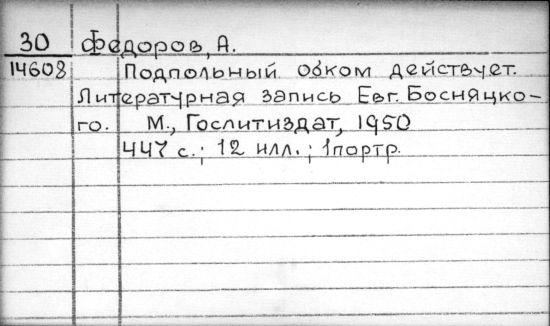 30 Федоров, А.
14608 Подпольный обком действует.
Литературная запись Евг. Босняцко-
го. М., Гослитиздат, 1950
447 с.; 12 илл.; 1портр.